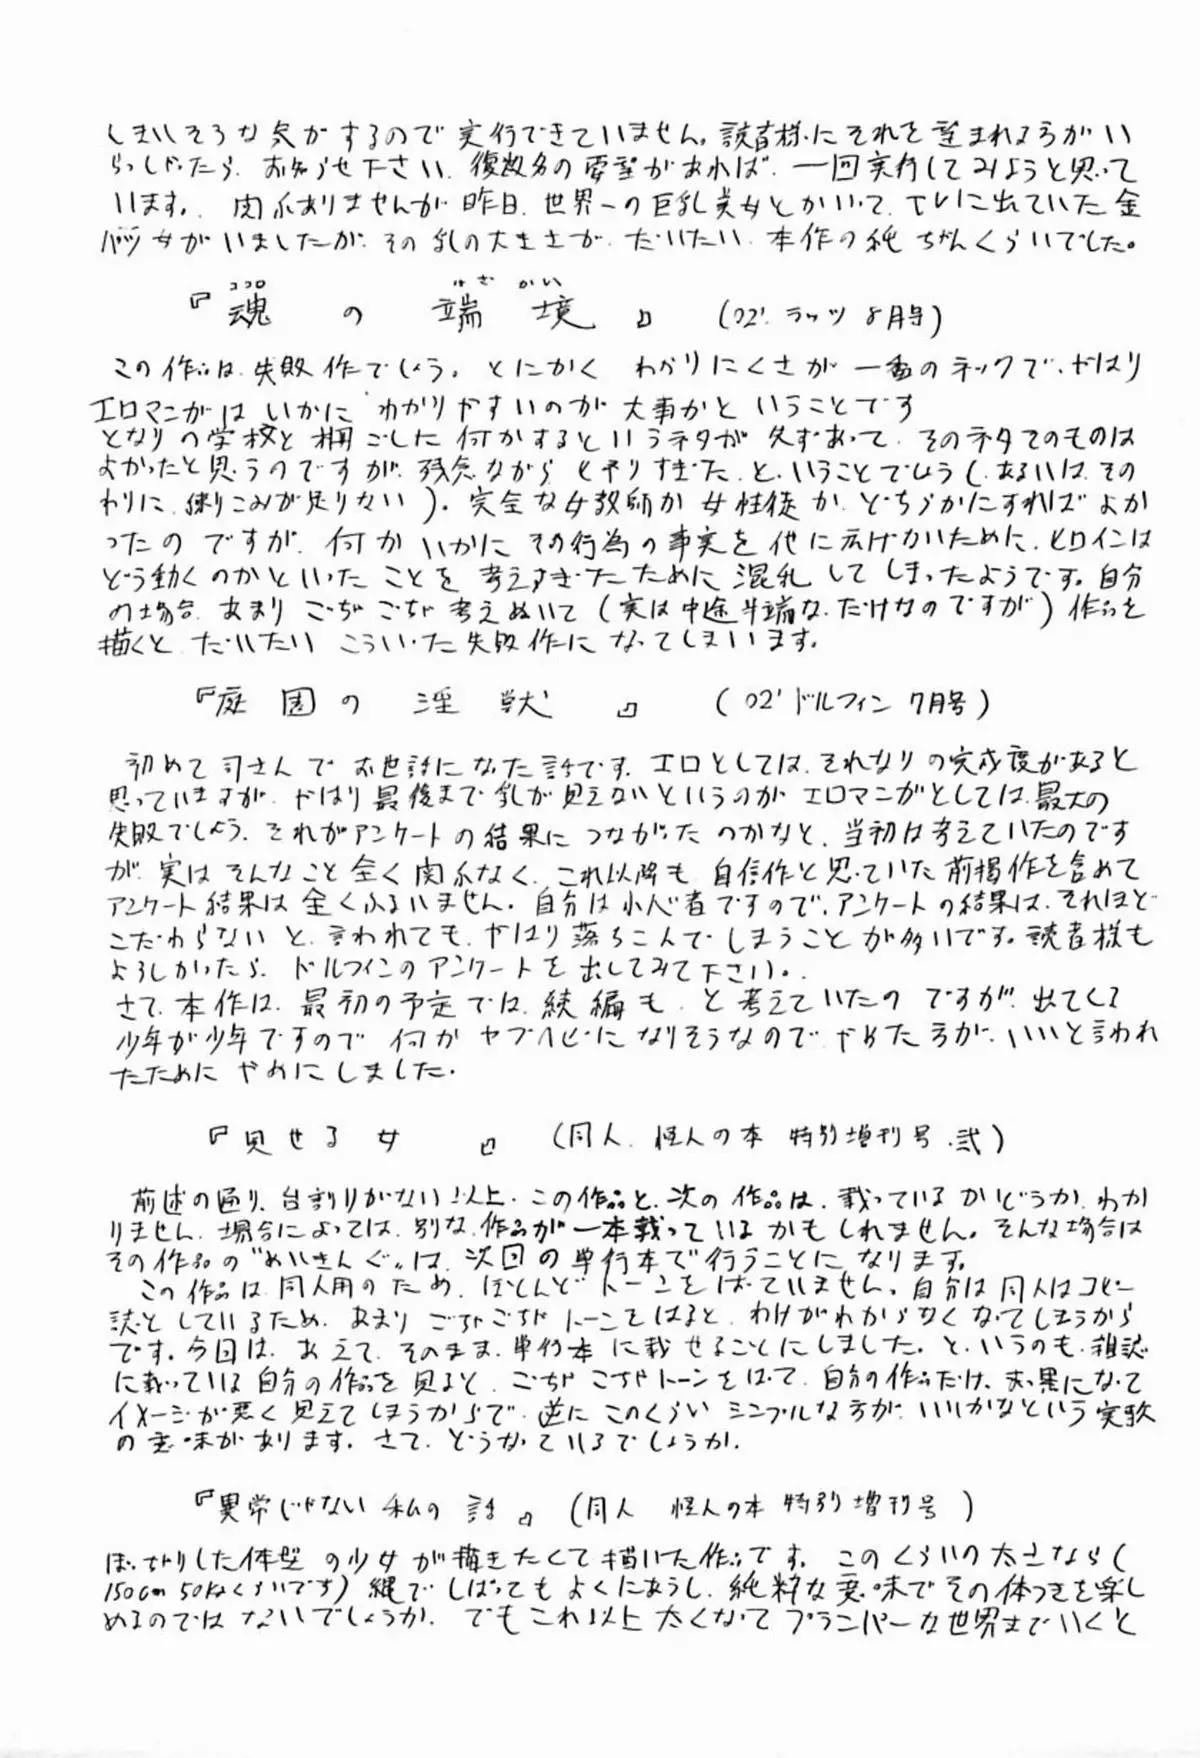 しまいそうな気がするので実行できていません。読者様にそれを望まれる方がい
らっしゃったら、お知らせ下さい。複数名の要望があれば、一回実行してみようと思って
います。関係ありませんが昨日、世界一の巨乳美女とかいって、TVに出ていた金
パツ女がいましたが、その乳の大きさが、だいたい、本作の純ちゃんくらいでした。
『魂の端境』(02'. ラッツ8月号)
ココロ はざかい
この作品は、失敗作でしょう。とにかく わかりにくさが一番のネックで、やはり
エロマンガは いかに わかりやすいのが大事かと いうことです
となりの学校と柵ごしに何かするというネタが先ずあって、そのネタでのものは
よかったと思うのですが、残念ながらヒネりすぎた、と、いうことでしょう(、あるいは、その
わりに、練りこみが足りない)。完全な女教師か女性徒か、どちらかにすればよか
ったのですが、何かいかにその行為の事実を他に広げないために、ヒロインは
どう動くのかといったことを考えすぎたために混乱してしまったようです。自分
の場合、あまりごちゃごちゃ考えぬいて(実は中途半端な、だけなのですが)作品を
描くと、だいたい こういった失敗作になってしまいます。
『庭園の淫獣』(02' ドルフィン7月号)
初めて司さんでお世話になった話です。エロとしては、それなりの完成度があると
思っていますが、やはり最後まで乳が見えないというのがエロマンガとしては、最大の
失敗でしょう。それがアンケートの結果につながったのかなと、当初は考えていたのです
が、実はそんなこと全く関係なく、これ以降も、自信作と思っていた前掲作を含めて
アンケート結果は全くふるいません。自分は小心者ですので、アンケートの結果は、それほど
こだわらないと、言われても、やはり落ちこんでしまうことが多いです。読者様も
よろしかったら、ドルフィンのアンケートを出してみて下さい。
さて、本作は、最初の予定では、続編も、と考えていたのですが、出てくる
少年が少年ですので何かヤブヘビになりそうなので、やめた方が、いいと言われ
たためにやめにしました。
『見せる女』(同人、怪人の本 特別増刊号、弐)
前述の通り、台割りがない以上、この作品と、次の作品は、載っているかどうか、わか
りません、場合によっては、別な作品が一本載っているかもしれません。そんな場合は
その作品の"めいきんぐ"は、次回の単行本で行うことになります。
この作品は同人用のため、ほとんどトーンをはっていません。自分は同人はコピー
誌としているため、あまりごちゃごちゃトーンをはると、わけがわからなくなってしまうから
です。今回は、あえて、そのまま、単行本に載せることにしました。と、いうのも、雑誌
に載っている自分の作品を見ると、ごちゃごちゃトーンをはって、自分の作品だけ、まっ黒になって
イメージが悪く見えてしまうからで、逆にこのくらいシンプルな方が、いいかなという実験
の意味があります。さて、どうなっているでしょうか。
『異常じゃない私の話』(同人 怪人の本 特別増刊号)
ぽっちゃりした体型の少女が描きたくて描いた作品です。このくらいの太さなら(
150cm 50kgくらいです)縄でしばってもよくにあうし、純粋な意味でその体つきを楽し
めるのではないでしょうか。でもこれ以上太くなってプランパーな世界までいくと